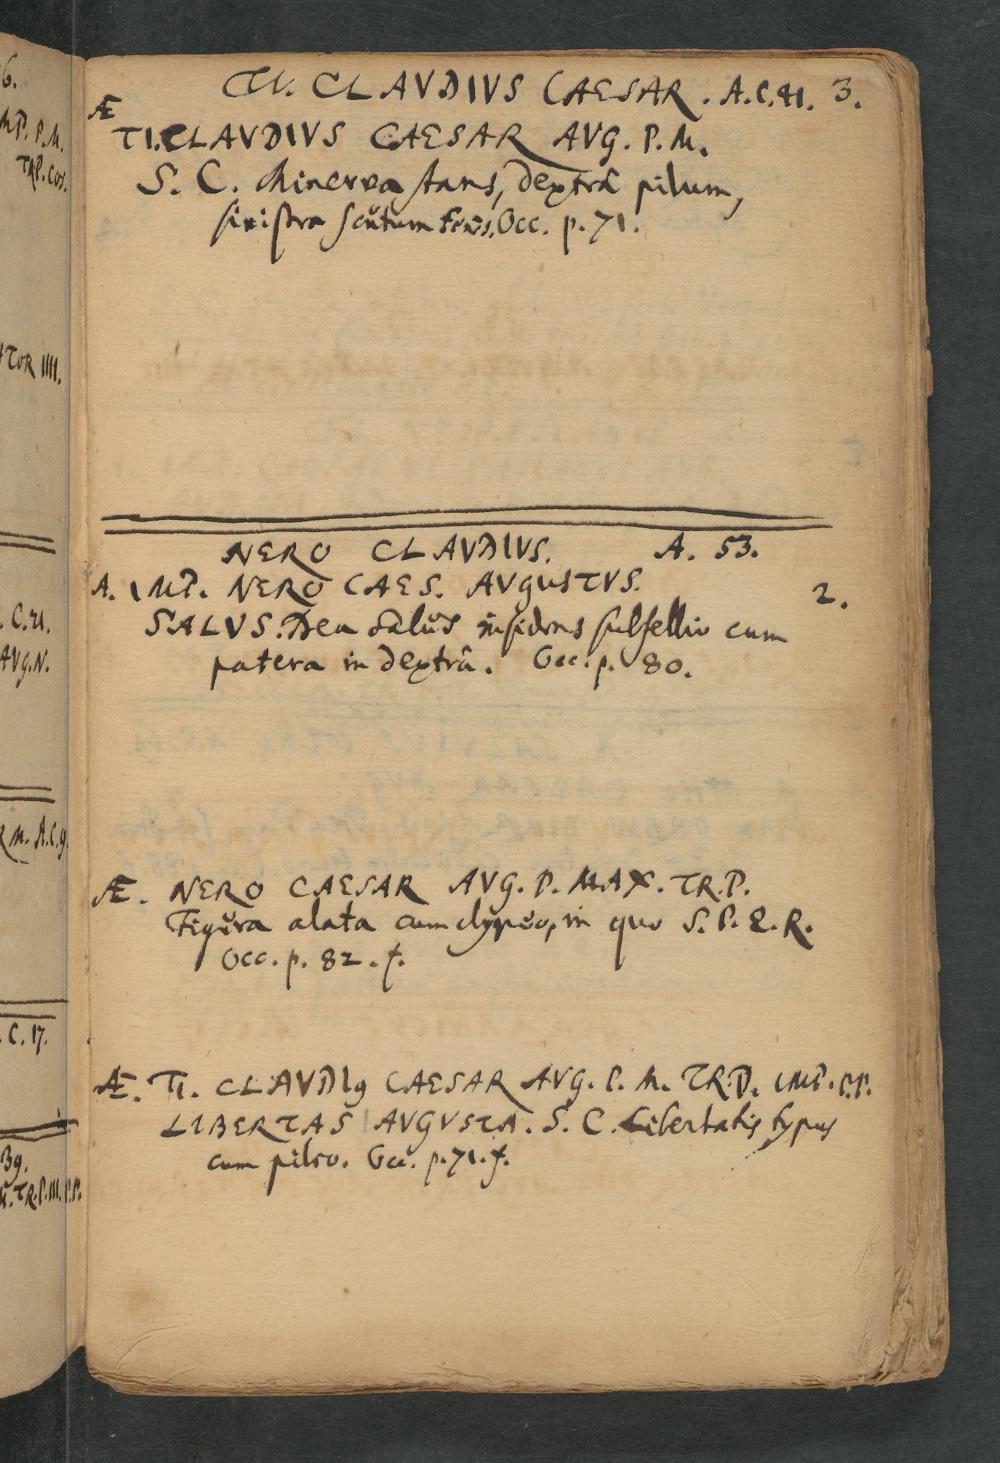 TI. CLAVDIVS CAESAR. A.C.41. 3.
Æ
TI. CLAVDIVS CAESAR AVG. P. M.
S. C. Minerva stans, dextrâ pilum,
sinistra scutum ferens. Occ. p. 71.
NERO CLAVDIVS. A. 53.
A. IMP. NERO CAES. AVGUSTVS. 2.
SALVS. Dea Salus insidens subsellio cum
patera in dextrâ. Occ. p. 80.
Æ. NERO CAESAR AVG. P. MAX. TR. P.
Figura alata cum clypeo, in quo S. P. Q. R.
Occ. p. 82. f.
Æ. TI. CLAVDIꝰ CAESAR AVG. P. M. TR. P. IMP. P. P.
LIBERTAS AVGVSTA. S. C. Libertatis typus
cum pileo. Occ. p. 71. f.
6.
MP. P. M.
TRP. COS.
ATOR IIII.
. C. 21.
AVG. N.
R M. A. C. 9
. C. 17.
39.
TR. P. III. P. P.